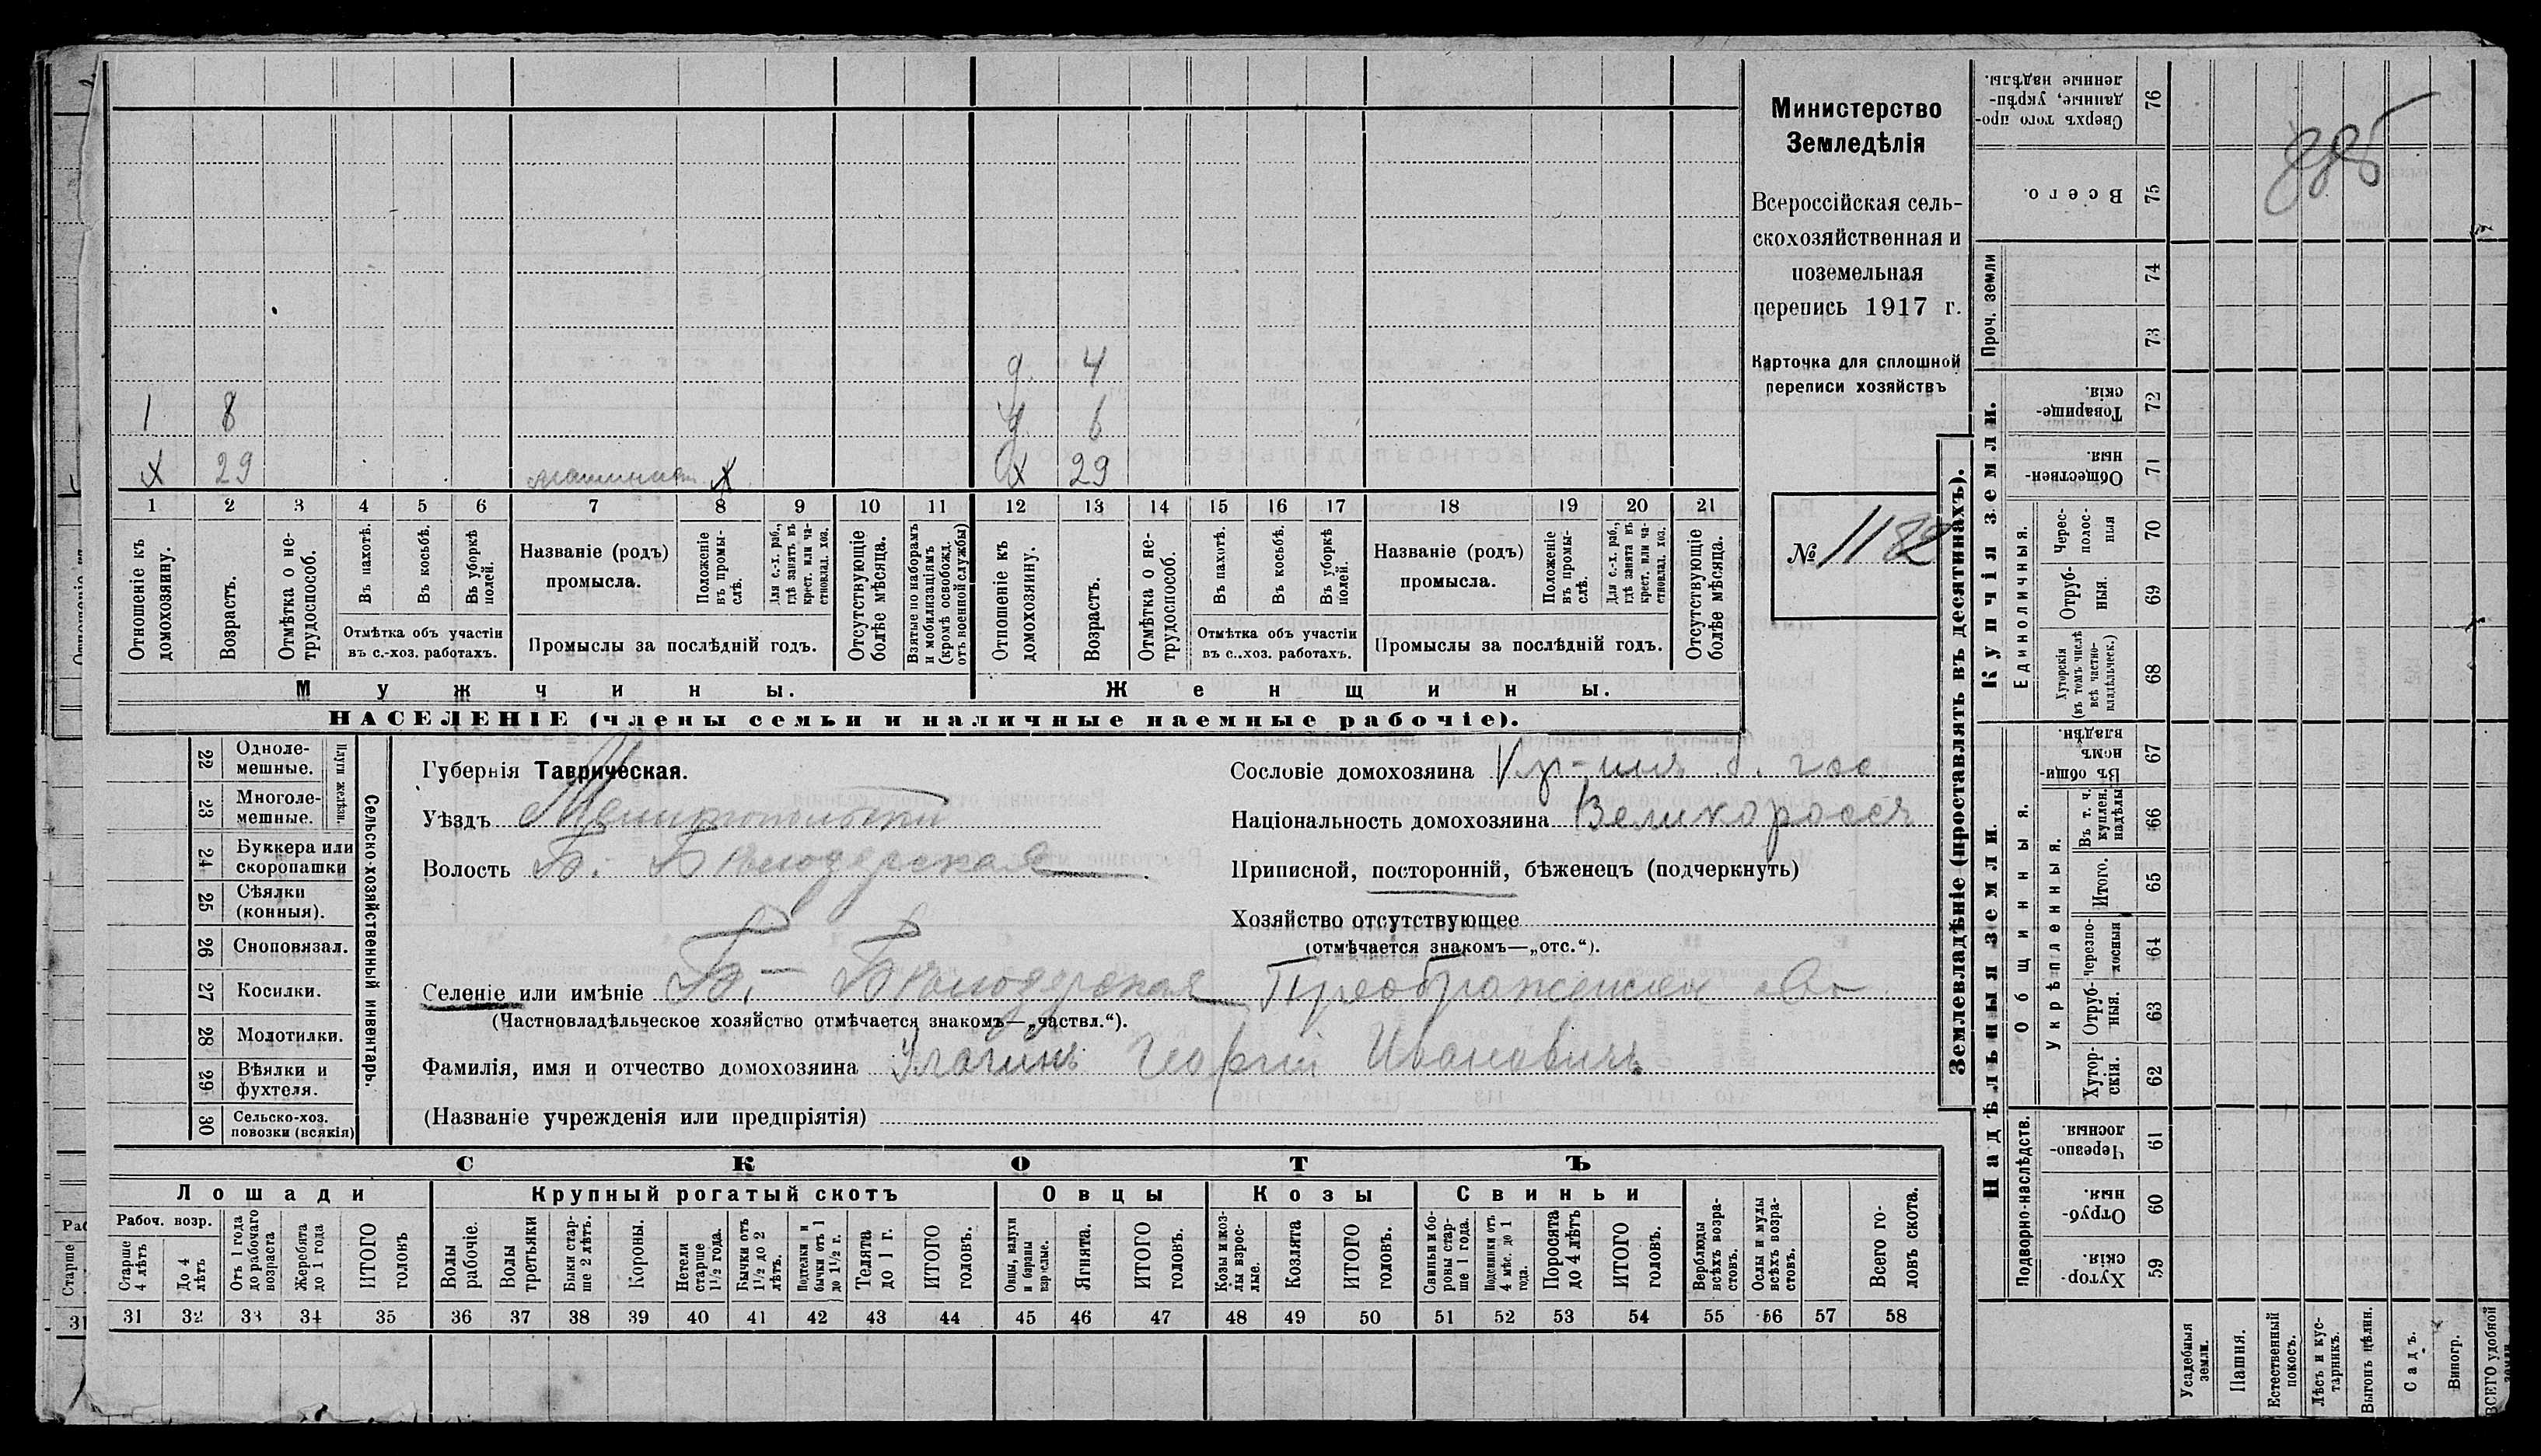 Министерство
Земледѣлія
Всероссійская сель-
скохозяйственная и
поземельная
перепись 1917 г.
Карточка для сплошной
переписи хозяйствъ
№ 1182
д. 4
1 8 д. 6
х 29 машинист. х х 29
1 2 3 4 5 6 7 8 9 10 11 12 13 14 15 16 17 18 19 20 21
Отношеніе къ домохозяину.
Возрастъ.
Отмѣтка о не-трудоспособ.
Въ пахотѣ.
Въ косьбѣ.
Въ уборкѣ полей.
Отмѣтка объ участіи
въ с.-хоз. работахъ.
Названіе (родъ)
промысла.
Положеніе въ промы-слѣ.
Для с.-х. раб., гдѣ занятъ въ крест. или ча-стновлад. хоз.
Промыслы за послѣдній годъ.
Отсутствующіе болѣе мѣсяца.
Взятые по наборамъ и мобилизаціямъ (кромѣ освобожд. отъ военной службы)
Отношеніе къ домохозяину.
Возрастъ.
Отмѣтка о не-трудоспособ.
Въ пахотѣ.
Въ косьбѣ.
Въ уборкѣ полей.
Отмѣтка объ участіи
въ с..хоз. работахъ.
Названіе (родъ)
промысла.
Положеніе въ промы-слѣ.
Для с.-х. раб., гдѣ занята въ крест. или ча-стновлад. хоз.
Промыслы за послѣдній годъ.
Отсутствующіе болѣе мѣсяца.
Мужчины.
Женщины.
НАСЕЛЕНІЕ (члены семьи и наличные наемные рабочіе).
Сельско-хозяйственный инвентарь.
Плуги желѣзн.
22 Одноле-мешные.
23 Многоле-мешные.
24 Буккера или скоропашки
25 Сѣялки (конныя).
26 Сноповязал.
27 Косилки.
28 Молотилки.
29 Вѣялки и фухтеля.
30 Сельско-хоз. повозки (всякія)
Губернія Таврическая.
Уѣздъ Мелитопольскій
Волость Б. - Бѣлозерская
Селеніе или имѣніе Б. - Бѣлозерская Преображенская
(Частновладѣльческое хозяйство отмѣчается знакомъ—„частвл.“).
Фамилія, имя и отчество домохозяина Георгій Ивановичъ
(Названіе учрежденія или предпріятія)
Сословіе домохозяина
Національность домохозяина Великороссъ
Приписной, посторонній, бѣженецъ (подчеркнуть)
Хозяйство отсутствующее
(отмѣчается знакомъ—„отс.“).
СКОТЪ
Лошади
Крупный рогатый скотъ
Овцы
Козы
Свиньи
Рабоч. возр.
Старше 4 лѣтъ
До 4 лѣтъ
Отъ 1 года до рабочаго возраста
Жеребята до 1 года
ИТОГО головъ
Волы рабочіе.
Волы третьяки
Быки стар-ше 2 лѣтъ.
Коровы.
Нетели старше 1½ года.
Бычки отъ 1½ до 2 лѣтъ.
Подтелки и бычки отъ 1 до 1½ г.
Телята до 1 г.
ИТОГО головъ.
Овцы, валухи и бараны взрослые.
Ягнята.
ИТОГО головъ.
Козы и коз-лы взрос-лые.
Козлята
ИТОГО головъ.
Свиньи и бо-ровы стар-ше 1 года.
Подсвинки отъ 4 мѣс. до 1 года.
Поросята до 4 лѣтъ
ИТОГО головъ.
Верблюды всѣхъ возра-стовъ.
Ослы и мулы всѣхъ возра-стовъ.
Всего го-ловъ скота.
31 32 33 34 35 36 37 38 39 40 41 42 43 44 45 46 47 48 49 50 51 52 53 54 55 56 57 58
Землевладѣніе (проставлять въ десятинахъ).
Купчія земли.
Надѣльныя земли.
Сверхъ того про-данные, укрѣп-ленные надѣлы. 76
Всего. 75
Проч. земли
74
73
Товарище-скія. 72
Обществен-ныя. 71
Единоличныя.
Черес-полос-ныя 70
Отруб-ныя. 69
Хуторскія (въ томъ числѣ всѣ частно-владѣльческ.) 68
Общинныя.
Въ общи-номъ владѣн. 67
Укрѣпленныя.
Въ т. ч. куплен. надѣлы 66
Итого. 65
Черезпо-лосныя 64
Отруб-ныя. 63
Хутор-скія. 62
Подворно-наслѣдств.
Черезпо-лосныя. 61
Отруб-ныя. 60
Хутор-скія. 59
Усадебныя земли.
Пашня.
Естественный покосъ.
Лѣсъ и кус-тарникъ.
Выгонъ цѣлин.
Садъ.
Виногр.
ВСЕГО удобной